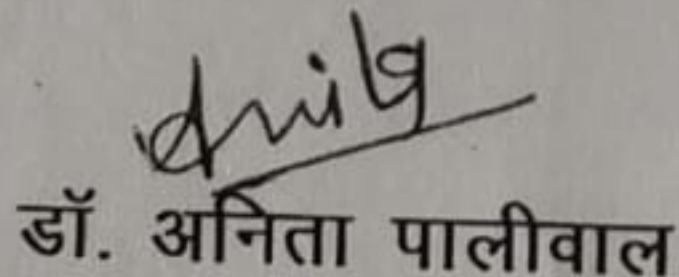 Anita
डॉ. अनिता पालीवाल